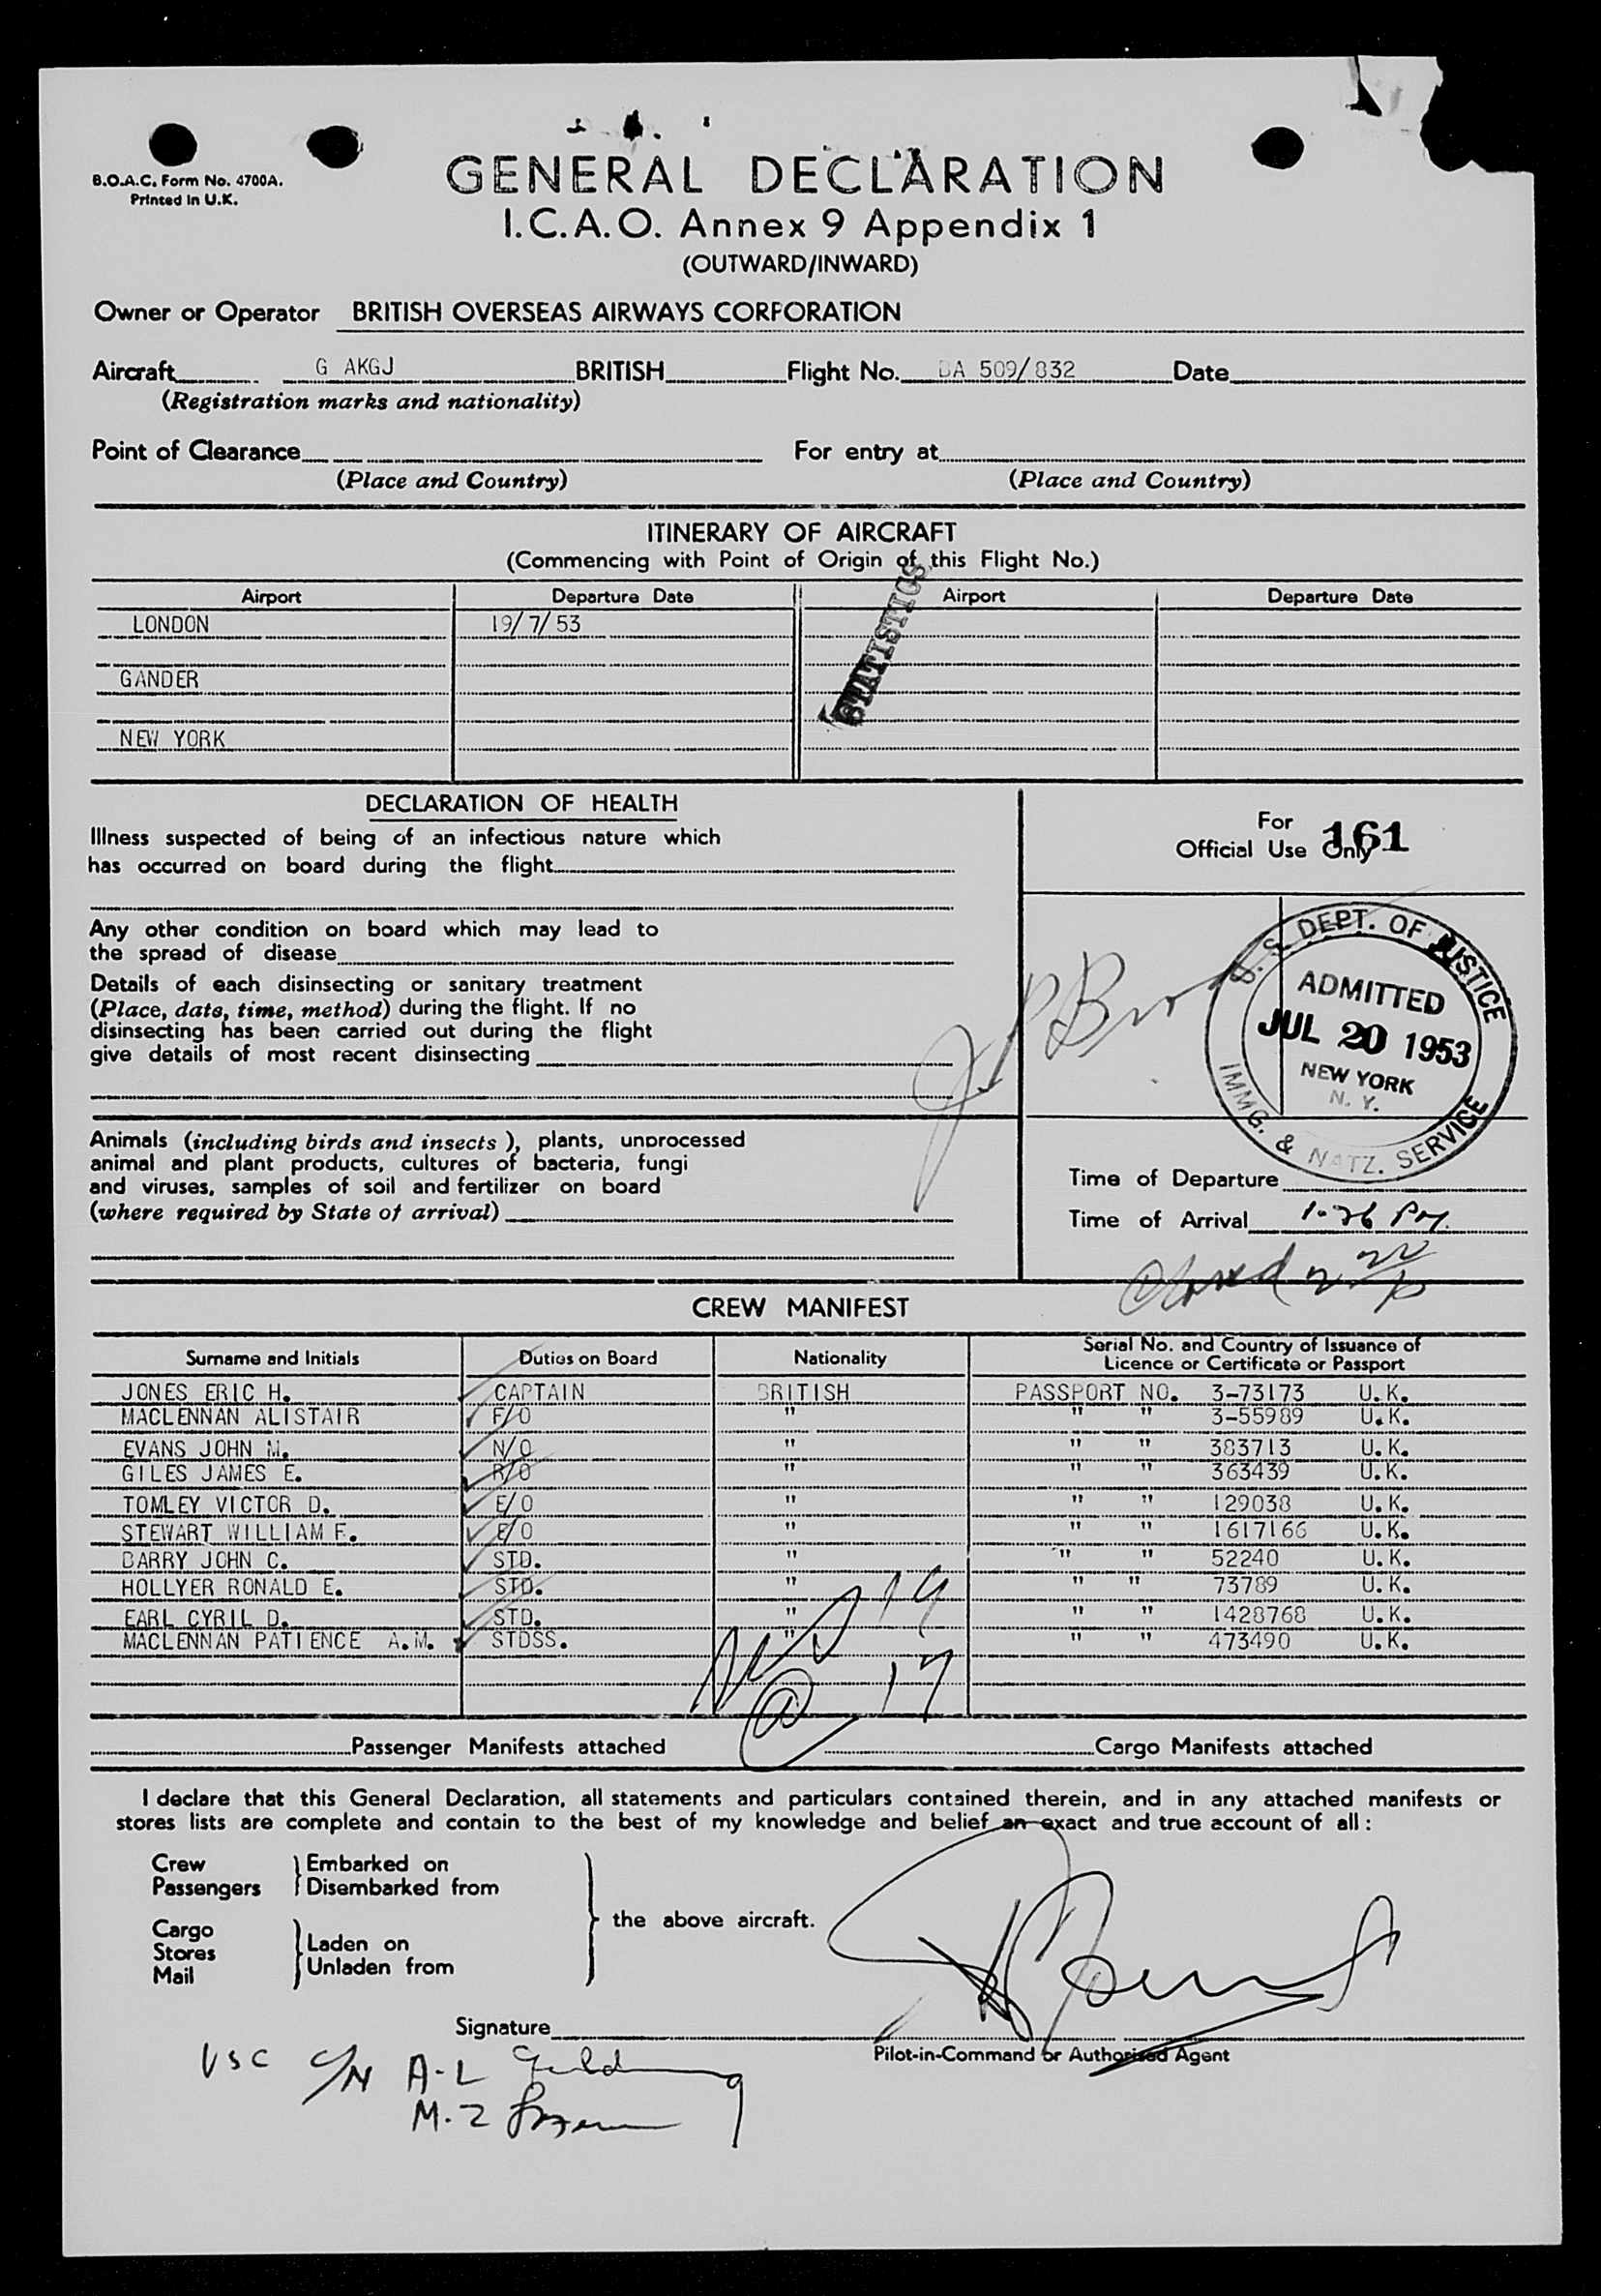 B.O.A.C. Form No. 4700A.
Printed in U.K.
GENERAL DECLARATION
I.C.A.O. Annex 9 Appendix 1
(OUTWARD/INWARD)
Owner or Operator BRITISH OVERSEAS AIRWAYS CORPORATION
Aircraft G AKGJ BRITISH Flight No. BA 509/832 Date
(Registration marks and nationality)
Point of Clearance For entry at
(Place and Country) (Place and Country)
ITINERARY OF AIRCRAFT
(Commencing with Point of Origin of this Flight No.)
Airport Departure Date Airport Departure Date
LONDON 19/7/53
STATISTICS
GANDER
NEW YORK
DECLARATION OF HEALTH
Illness suspected of being of an infectious nature which
has occurred on board during the flight
Any other condition on board which may lead to
the spread of disease
Details of each disinsecting or sanitary treatment
(Place, date, time, method) during the flight. If no
disinsecting has been carried out during the flight
give details of most recent disinsecting
Animals (including birds and insects), plants, unprocessed
animal and plant products, cultures of bacteria, fungi
and viruses, samples of soil and fertilizer on board
(where required by State of arrival)
For
Official Use Only 161
U. S. DEPT. OF JUSTICE
ADMITTED
JUL 20 1953
NEW YORK
N. Y.
IMMG. & NATZ. SERVICE
Time of Departure
Time of Arrival 1-26 PM.
CREW MANIFEST
Surname and Initials Duties on Board Nationality Serial No. and Country of Issuance of
Licence or Certificate or Passport
JONES ERIC H. CAPTAIN BRITISH PASSPORT NO. 3-73173 U.K.
MACLENNAN ALISTAIR F/O " " " 3-55989 U.K.
EVANS JOHN M. N/O " " " 383713 U.K.
GILES JAMES E. R/O " " " 363439 U.K.
TOMLEY VICTOR D. E/O " " " 129038 U.K.
STEWART WILLIAM F. E/O " " " 1617166 U.K.
BARRY JOHN C. STD. " " " 52240 U.K.
HOLLYER RONALD E. STD. " " " 73789 U.K.
EARL CYRIL D. STD. " " " 1428768 U.K.
MACLENNAN PATIENCE A.M. STDSS. " " " 473490 U.K.
19
17
Passenger Manifests attached Cargo Manifests attached
I declare that this General Declaration, all statements and particulars contained therein, and in any attached manifests or
stores lists are complete and contain to the best of my knowledge and belief an exact and true account of all :
Crew
Passengers
Embarked on
Disembarked from
Cargo
Stores
Mail
Laden on
Unladen from
the above aircraft.
Signature
Pilot-in-Command or Authorised Agent
VSC C/N A-L
M.Z